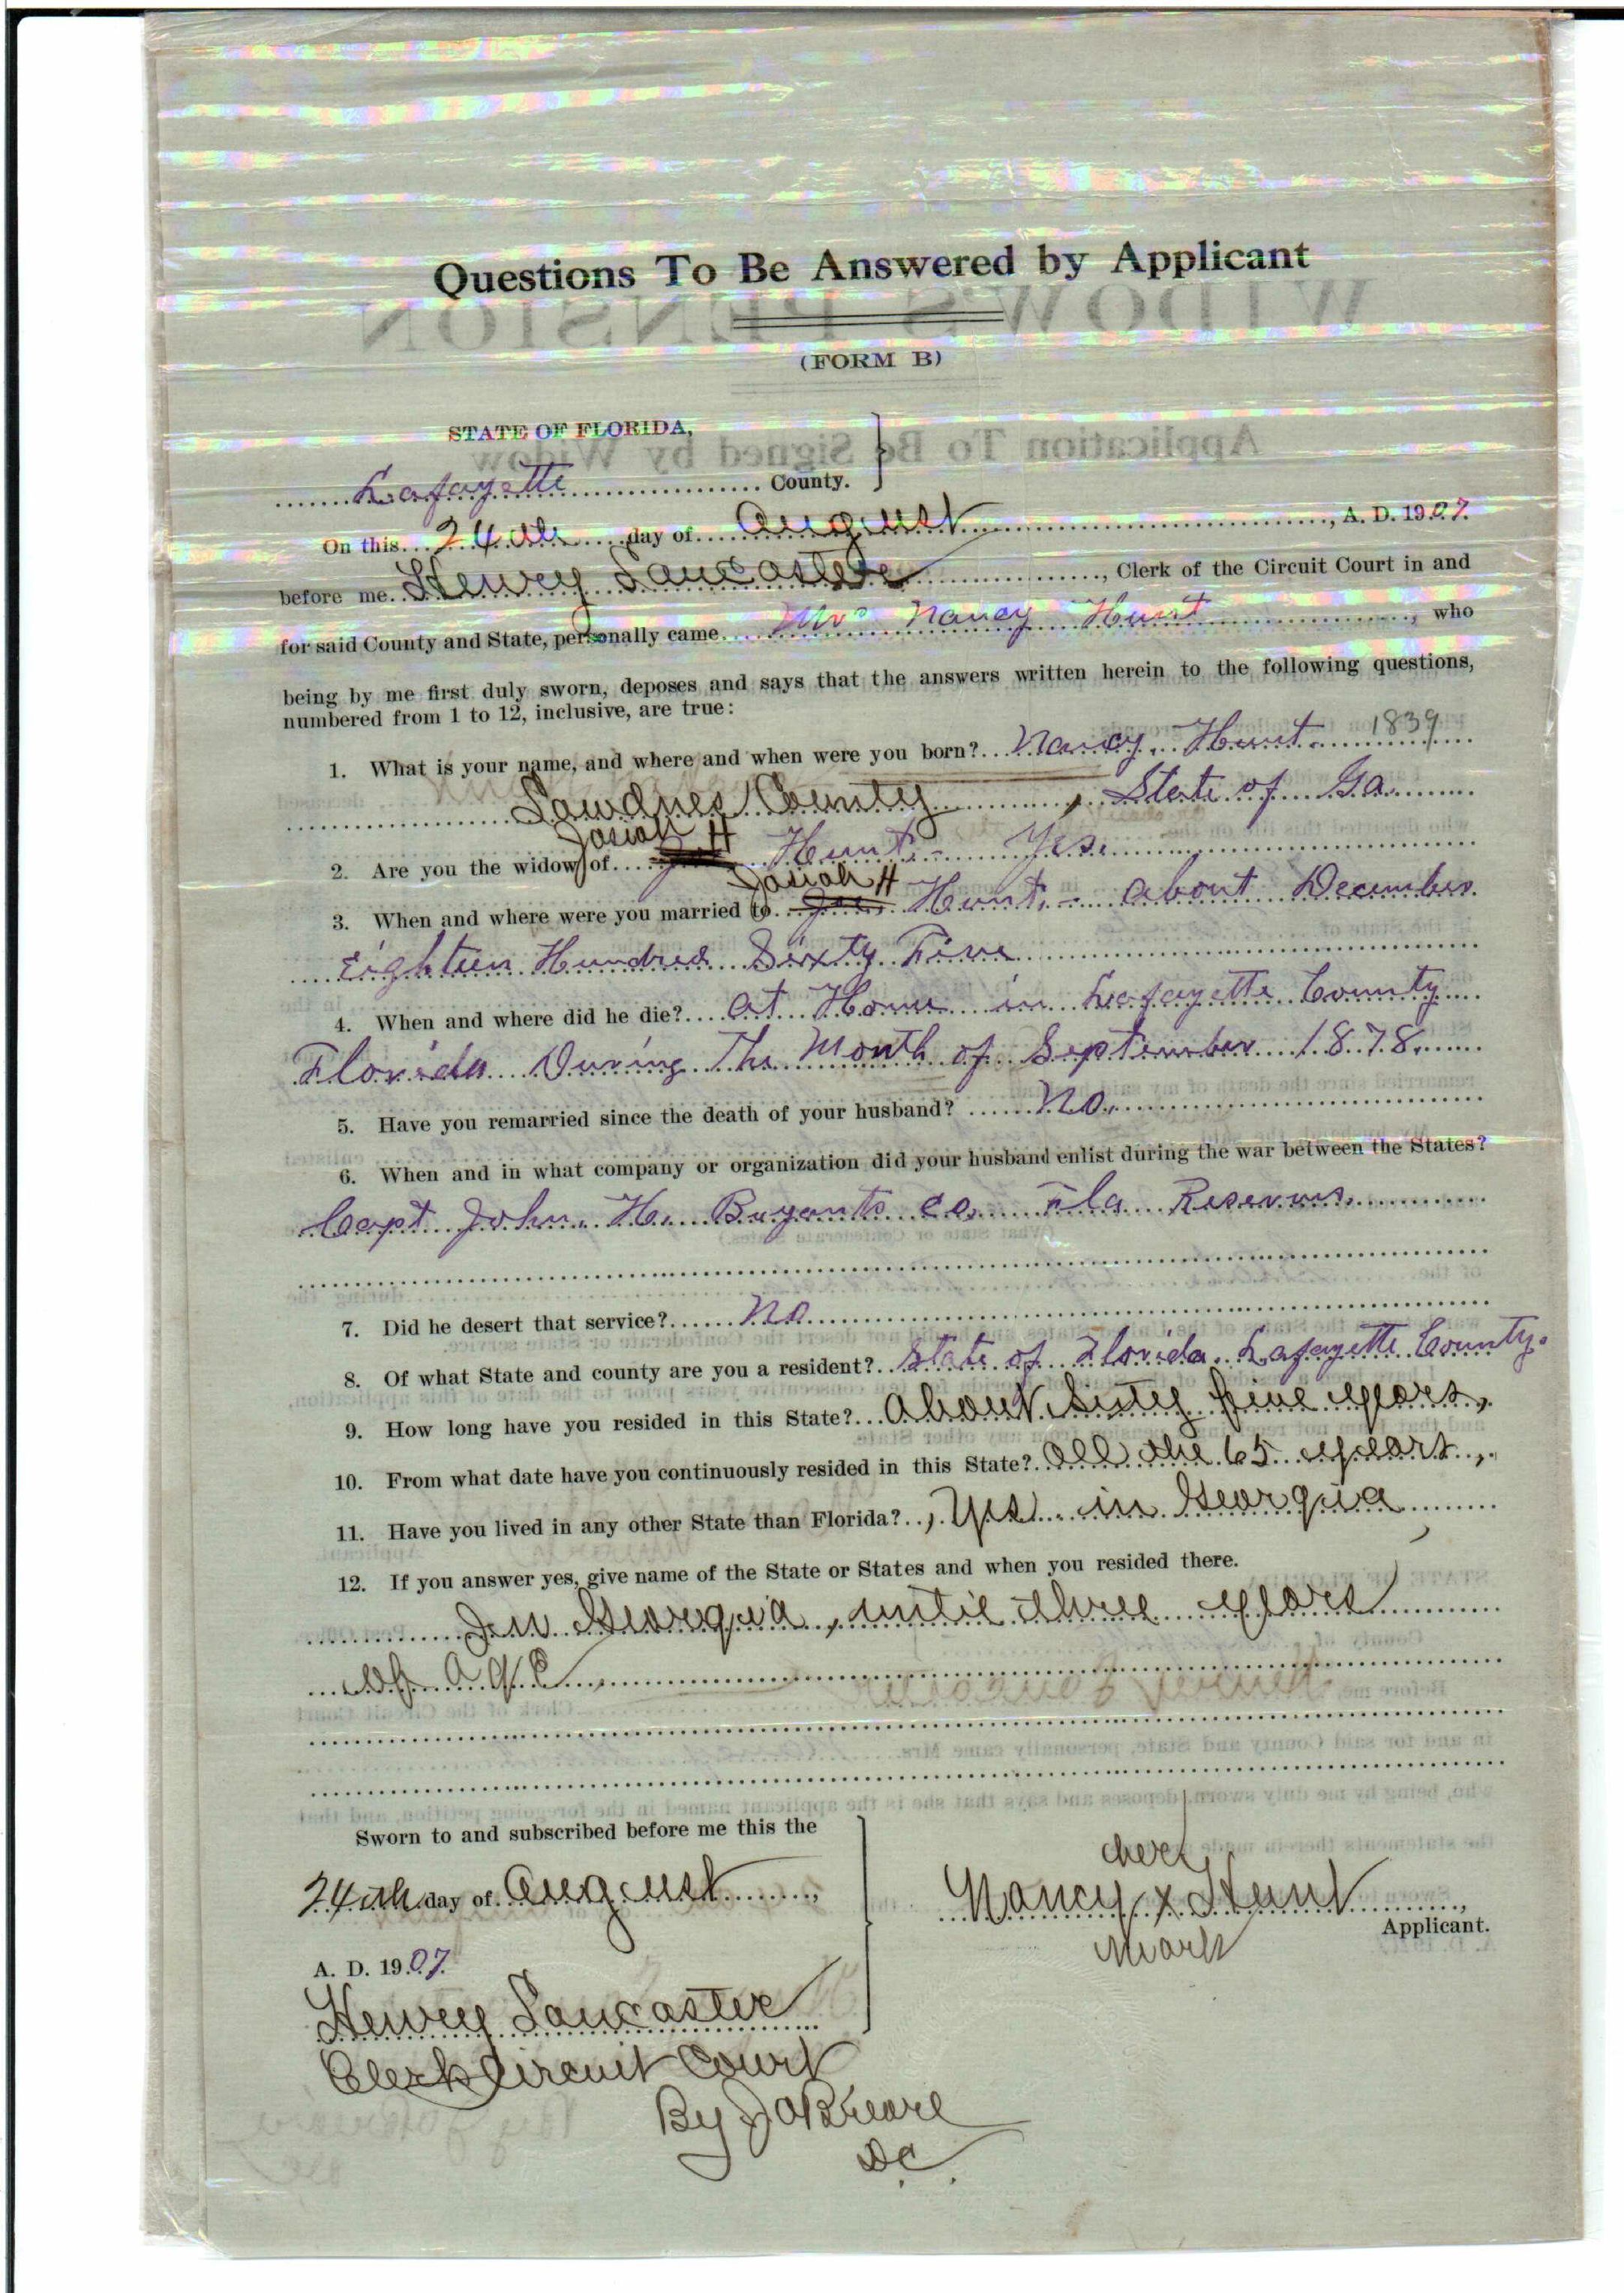 Questions To Be Answered by Applicant
(FORM B)
STATE OF FLORIDA,
Lafayette County.
On this 24th day of August, A. D. 1907
before me Henry Lancaster, Clerk of the Circuit Court in and
for said County and State, personally came Mrs Nancy Hunt, who
being by me first duly sworn, deposes and says that the answers written herein to the following questions,
numbered from 1 to 12, inclusive, are true:
1. What is your name, and where and when were you born? Nancy Hunt 1839
Lowdnes County, State of Ga.
2. Are you the widow of Josiah H Hunt - Yes.
3. When and where were you married to Josiah H Hunt. - about December
Eighteen Hundred Sixty Five
4. When and where did he die? at Home in Lafayette County
Florida During The Month of September 1878.
5. Have you remarried since the death of your husband? No.
6. When and in what company or organization did your husband enlist during the war between the States?
Capt John. H. Bryants Co. Fla Reserves.
7. Did he desert that service? No
8. Of what State and county are you a resident? State of Florida. Lafayette County.
9. How long have you resided in this State? About Sixty five years,
10. From what date have you continuously resided in this State? All the 65 years,
11. Have you lived in any other State than Florida? , Yes in Georgia
12. If you answer yes, give name of the State or States and when you resided there.
In Georgia, until three years
of age
Sworn to and subscribed before me this the
24th day of August,
A. D. 1907
her
Nancy x Hunt,
mark
Applicant.
Henry Lancaster
Clerk Circuit Court
By
D.C.